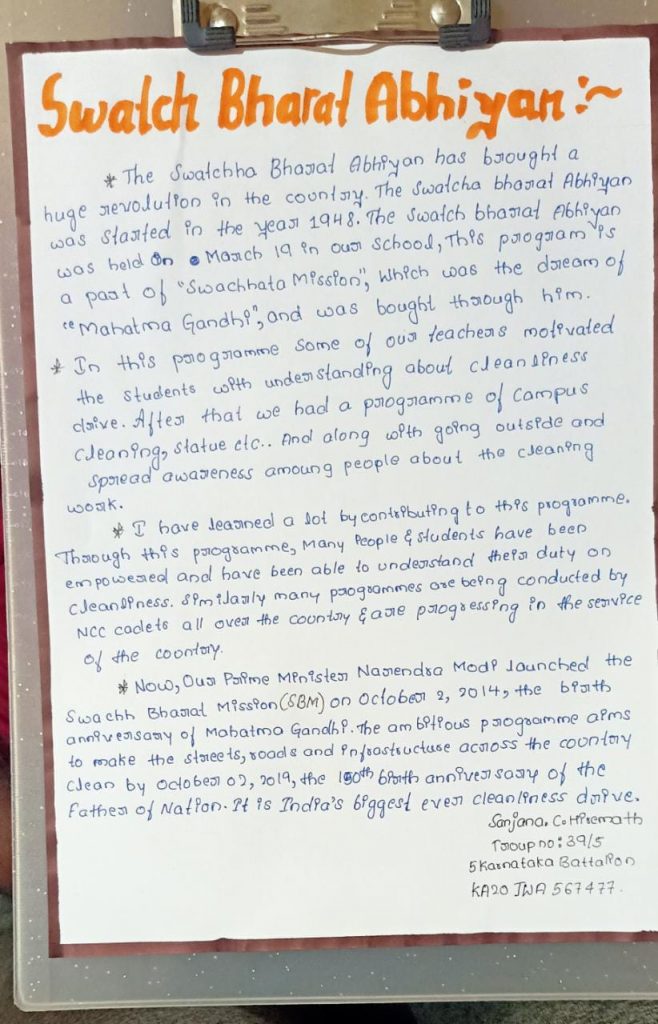 Swatch Bharat Abhiyan :~
* The Swatchha Bharat Abhiyan has brought a
huge revolution in the country. The Swatcha bharat Abhiyan
was started in the year 1948. The Swatch bharat Abhiyan
was held on March 19 in our school, This program is
a part of "Swachhata Mission", which was the dream of
"Mahatma Gandhi", and was bought through him.
* In this programme some of our teachers motivated
the students with understanding about cleanliness
drive. After that we had a programme of campus
cleaning, statue etc.. And along with going outside and
spread awareness amoung people about the cleaning
work.
* I have learned a lot by contributing to this programme.
Through this programme, Many People & students have been
empowered and have been able to understand their duty on
cleanliness. Similarly many programmes are being conducted by
NCC cadets all over the country & are progressing in the service
of the coontry.
* Now, Our Prime Minister Narendra Modi launched the
Swachh Bharat Mission (SBM) on October 2, 2014, the birth
anniversary of Mahatma Gandhi. The ambitious programme aims
to make the streets, roads and infrastructure across the country
clean by october 02, 2019, the 150th birth anniversary of the
Father of Nation. It is India's biggest ever cleanliness drive.
Sanjana. C. Hiremath
Troup no: 39/5
5 Karnataka Battalion
KA20 JWA 567477.